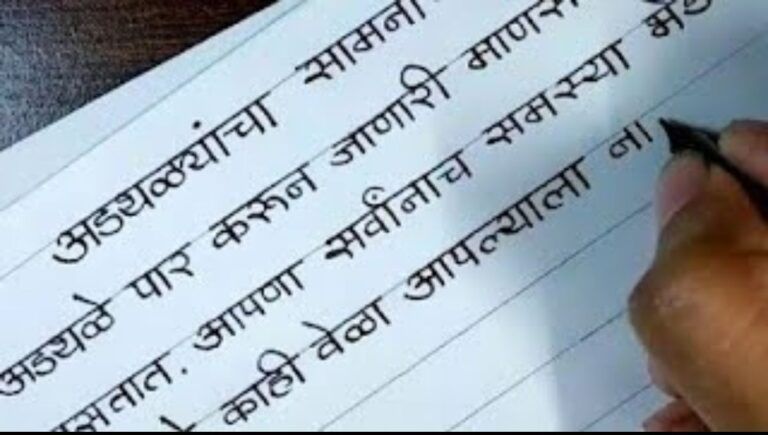 अडथळ्यांचा सामना
अडथळे पार करून जाणारी माणस
सतात. आपणा सर्वांनाच समस्या भेड
काही वेळा आपल्याला ना